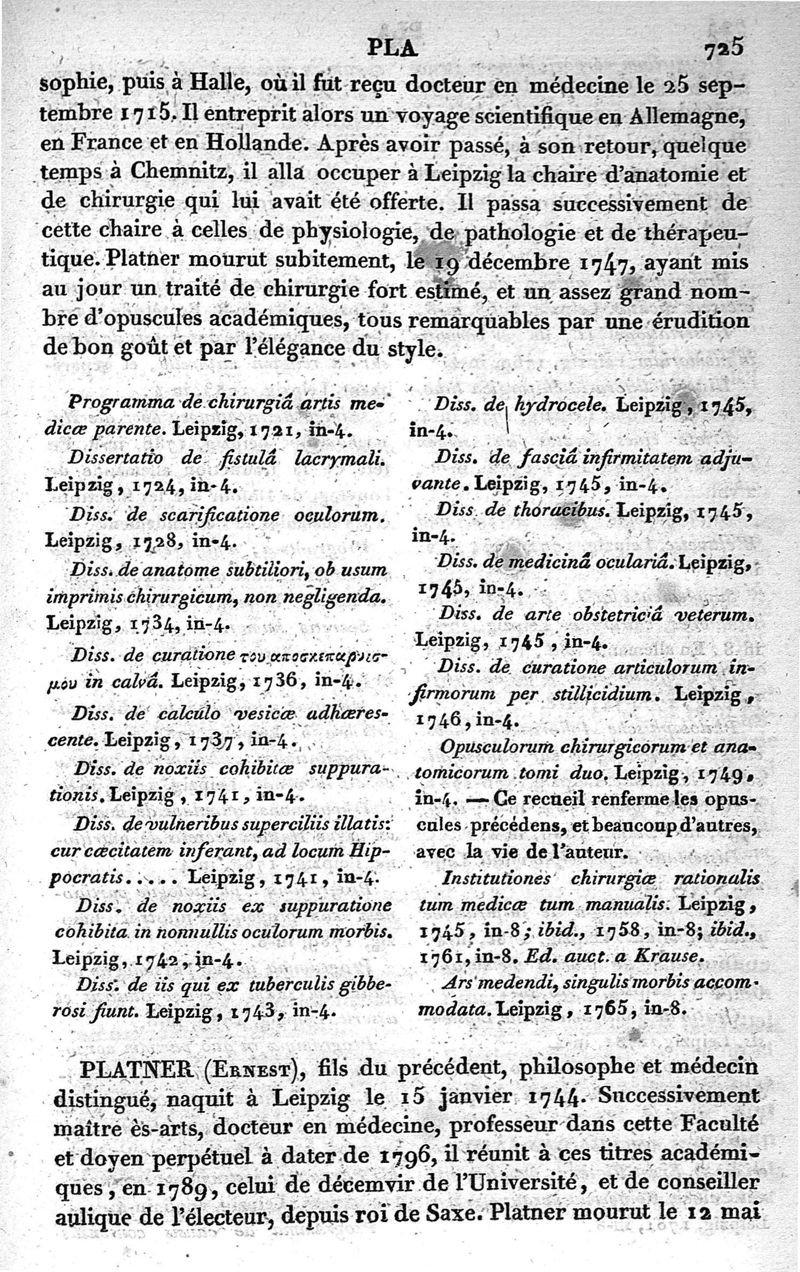 PLA 725
sophie, puis à Halle, où il fut reçu docteur en médecine le 25 sep-
tembre 1715. Il entreprit alors un voyage scientifique en Allemagne,
en France et en Hollande. Après avoir passé, à son retour, quelque
temps à Chemnitz, il alla occuper à Leipzig la chaire d'anatomie et
de chirurgie qui lui avait été offerte. Il passa successivement de
cette chaire à celles de physiologie, de pathologie et de thérapeu-
tique. Platner mourut subitement, le 19 décembre 1747, ayant mis
au jour un traité de chirurgie fort estimé, et un assez grand nom-
bre d'opuscules académiques, tous remarquables par une érudition
de bon goût et par l'élégance du style.
Programma de chirurgiâ artis me-
dicæ parente. Leipzig, 1721, in-4.
Dissertatio de fistulâ lacrymali.
Leipzig, 1724, in-4.
Diss. de scarificatione oculorum.
Leipzig, 1728, in-4.
Diss. de anatome subtiliori, ob usum
imprimis chirurgicum, non negligenda.
Leipzig, 1734, in-4.
Diss. de curatione
in calvâ. Leipzig, 1736, in-4.
Diss. de calculo vesicæ adhæres-
cente. Leipzig, 1737, in-4.
Diss. de noxiis cohibitæ suppura-
tionis. Leipzig, 1741, in-4.
Diss. de vulneribus superciliis illatis:
cur cæcitatem inferant, ad locum Hip-
pocratis..... Leipzig, 1741, in-4.
Diss. de noxiis ex suppuratione
cohibita in nonnullis oculorum morbis.
Leipzig, 1742, in-4.
Diss. de iis qui ex tuberculis gibbe-
rosi fiunt. Leipzig, 1743, in-4.
Diss. de hydrocele. Leipzig, 1745,
in-4.
Diss. de fasciâ infirmitatem adju-
vante. Leipzig, 1745, in-4.
Diss de thoracibus. Leipzig, 1745,
in-4.
Diss. de medicinâ oculariâ. Leipzig,
1745, in-4.
Diss. de arte obstetriciâ veterum.
Leipzig, 1745, in-4.
Diss. de curatione articulorum in-
firmorum per stillicidium. Leipzig,
1746, in-4.
Opusculorum chirurgicorum et ana-
tomicorum tomi duo. Leipzig, 1749,
in-4. — Ce recueil renferme les opus-
cules précédens, et beaucoup d'autres,
avec la vie de l'auteur.
Institutiones chirurgiæ rationalis
tum medicæ tum manualis. Leipzig,
1745, in-8; ibid., 1758, in-8; ibid.,
1761, in-8. Ed. auct. a Krause.
Ars medendi, singulis morbis accom-
modata. Leipzig, 1765, in-8.
PLATNER (ERNEST), fils du précédent, philosophe et médecin
distingué, naquit à Leipzig le 15 janvier 1744. Successivement
maître ès-arts, docteur en médecine, professeur dans cette Faculté
et doyen perpétuel à dater de 1796, il réunit à ces titres académi-
ques, en 1789, celui de décemvir de l'Université, et de conseiller
aulique de l'électeur, depuis roi de Saxe. Platner mourut le 12 mai